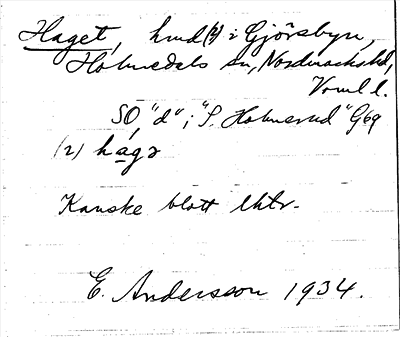 Haget, hmd(2) i Gjörsbyn,
Holmedals sn, Nordmarks hd,
Vrml l.
SO "d" i "S. Holmerud" G69
(2) hagə
Kanske blott lktr.
E. Andersson 1934.